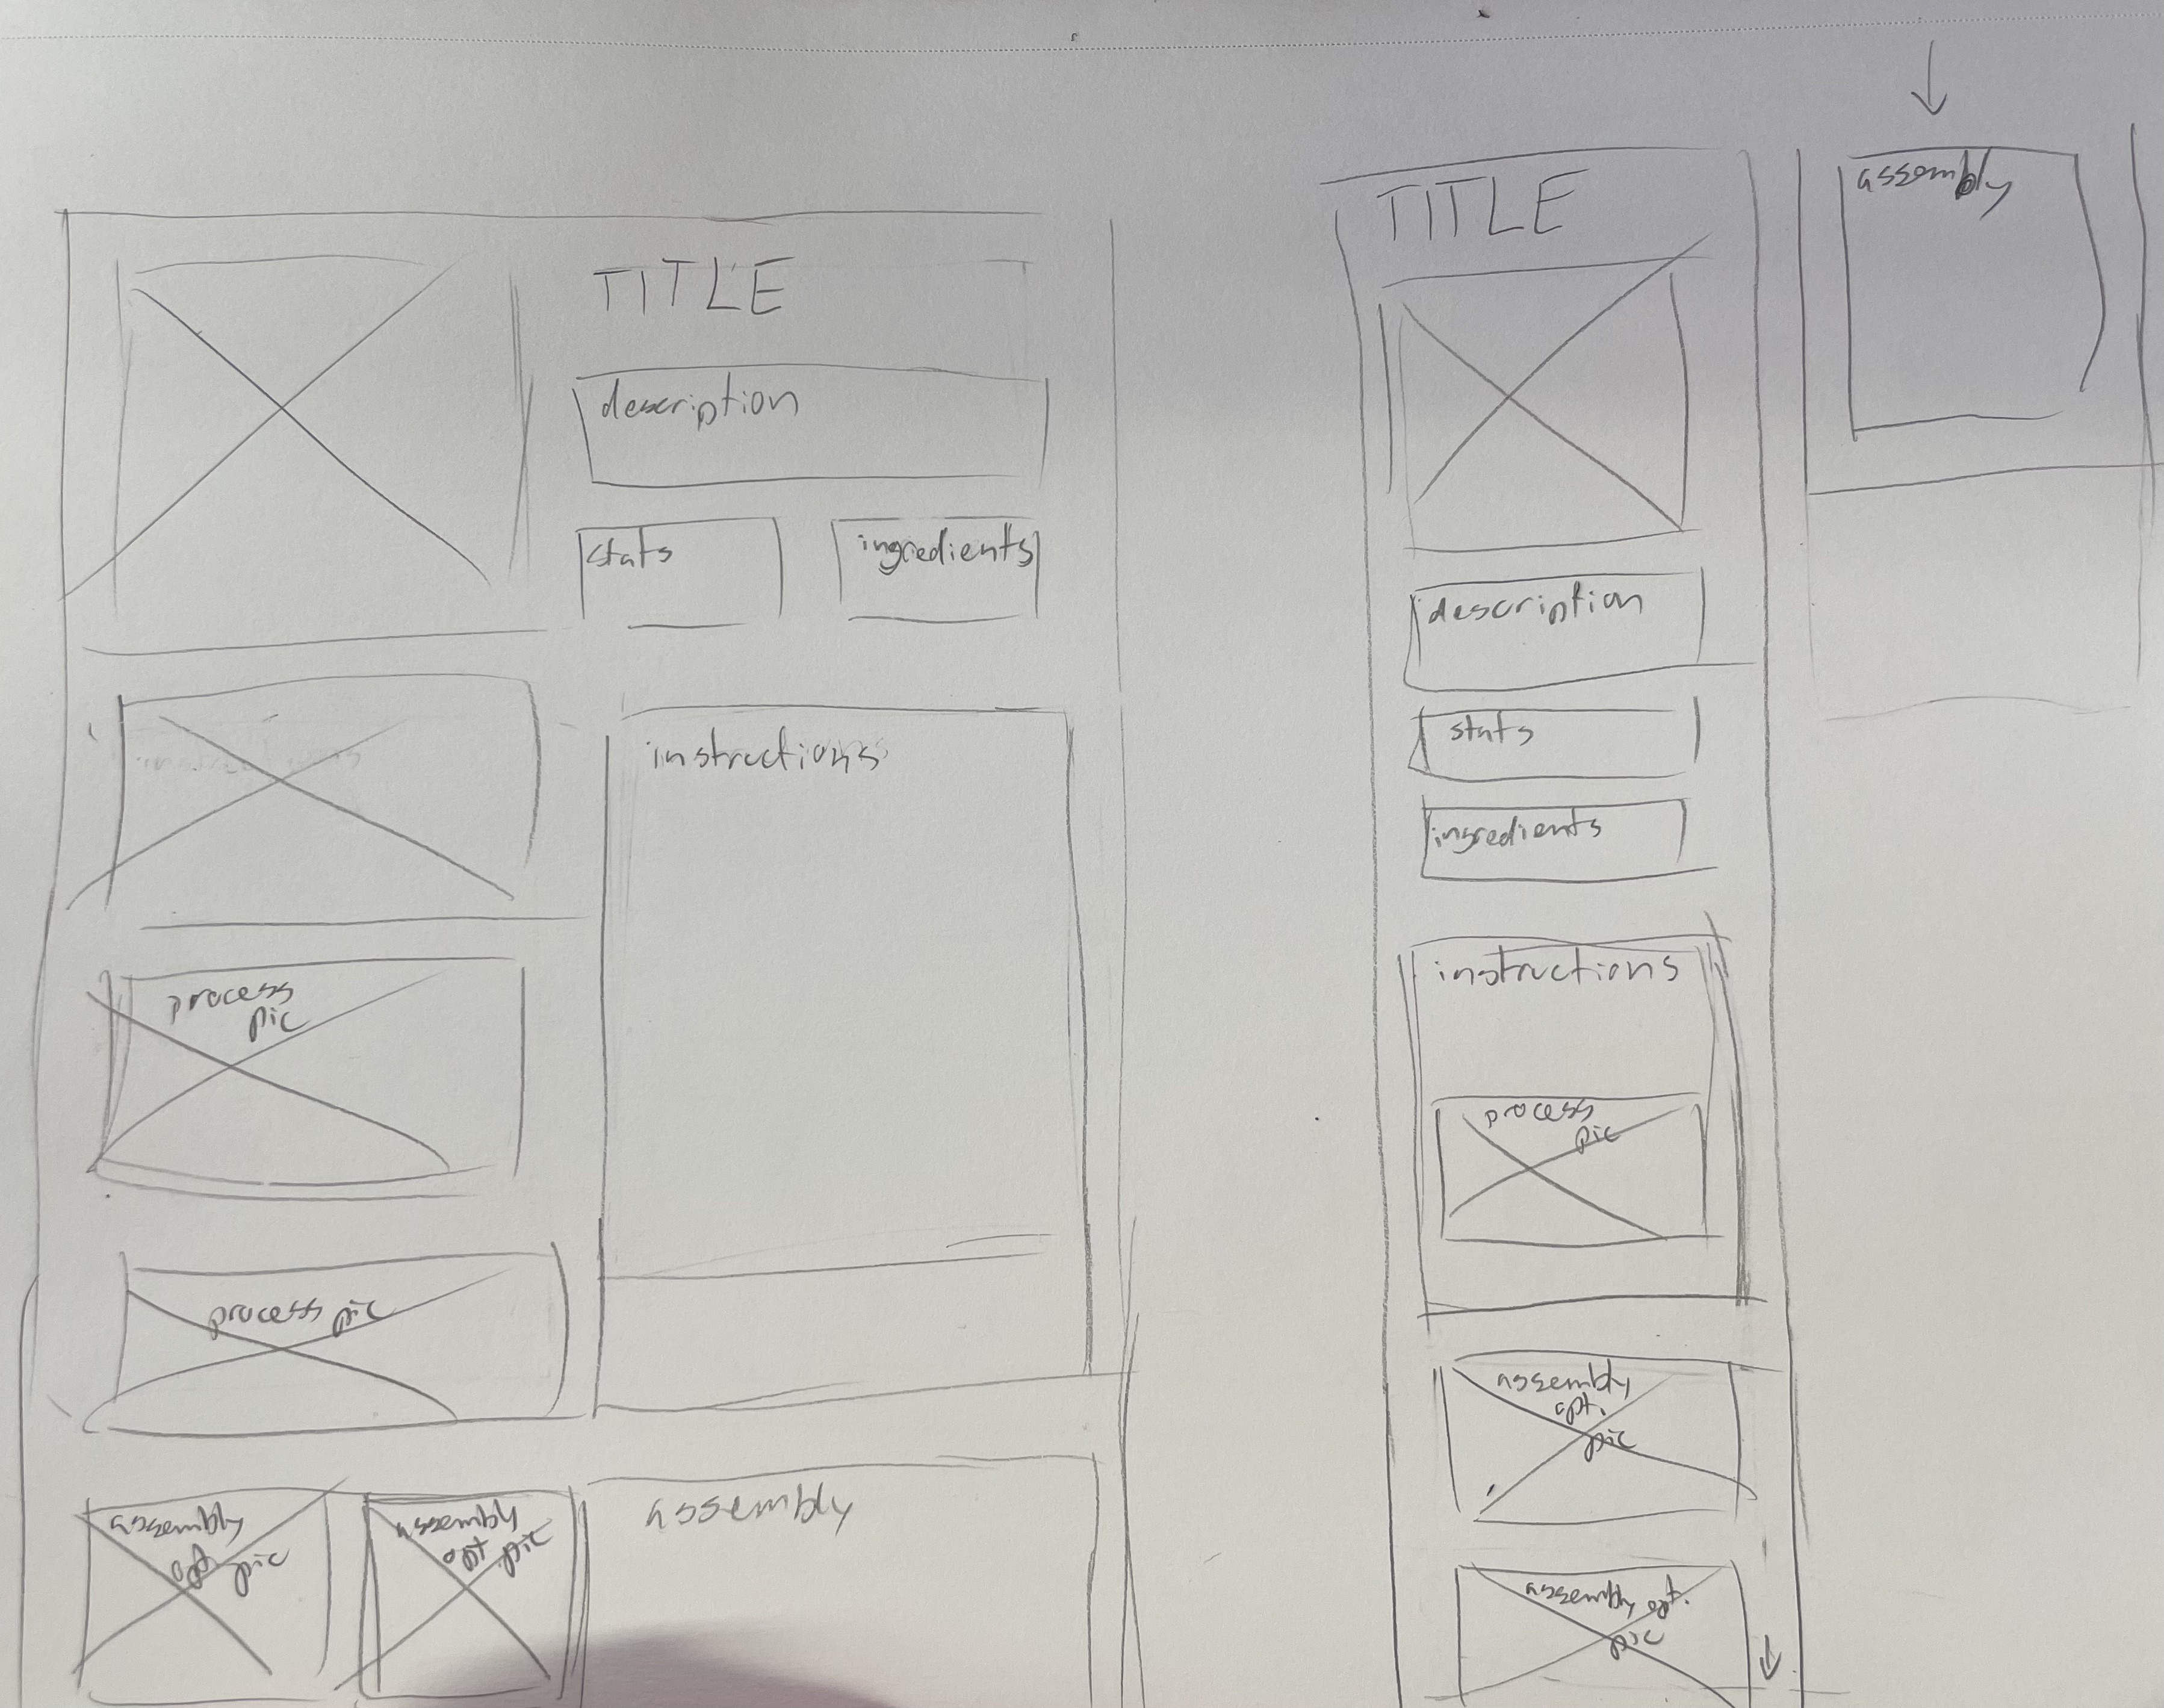 TITLE
description
stats
ingredients
instructions
process
pic
process pic
assembly
opt pic
assembly
opt pic
assembly
TITLE
description
stats
ingredients
instructions
process
pic
assembly
opt.
pic
assembly opt.
pic
assembly